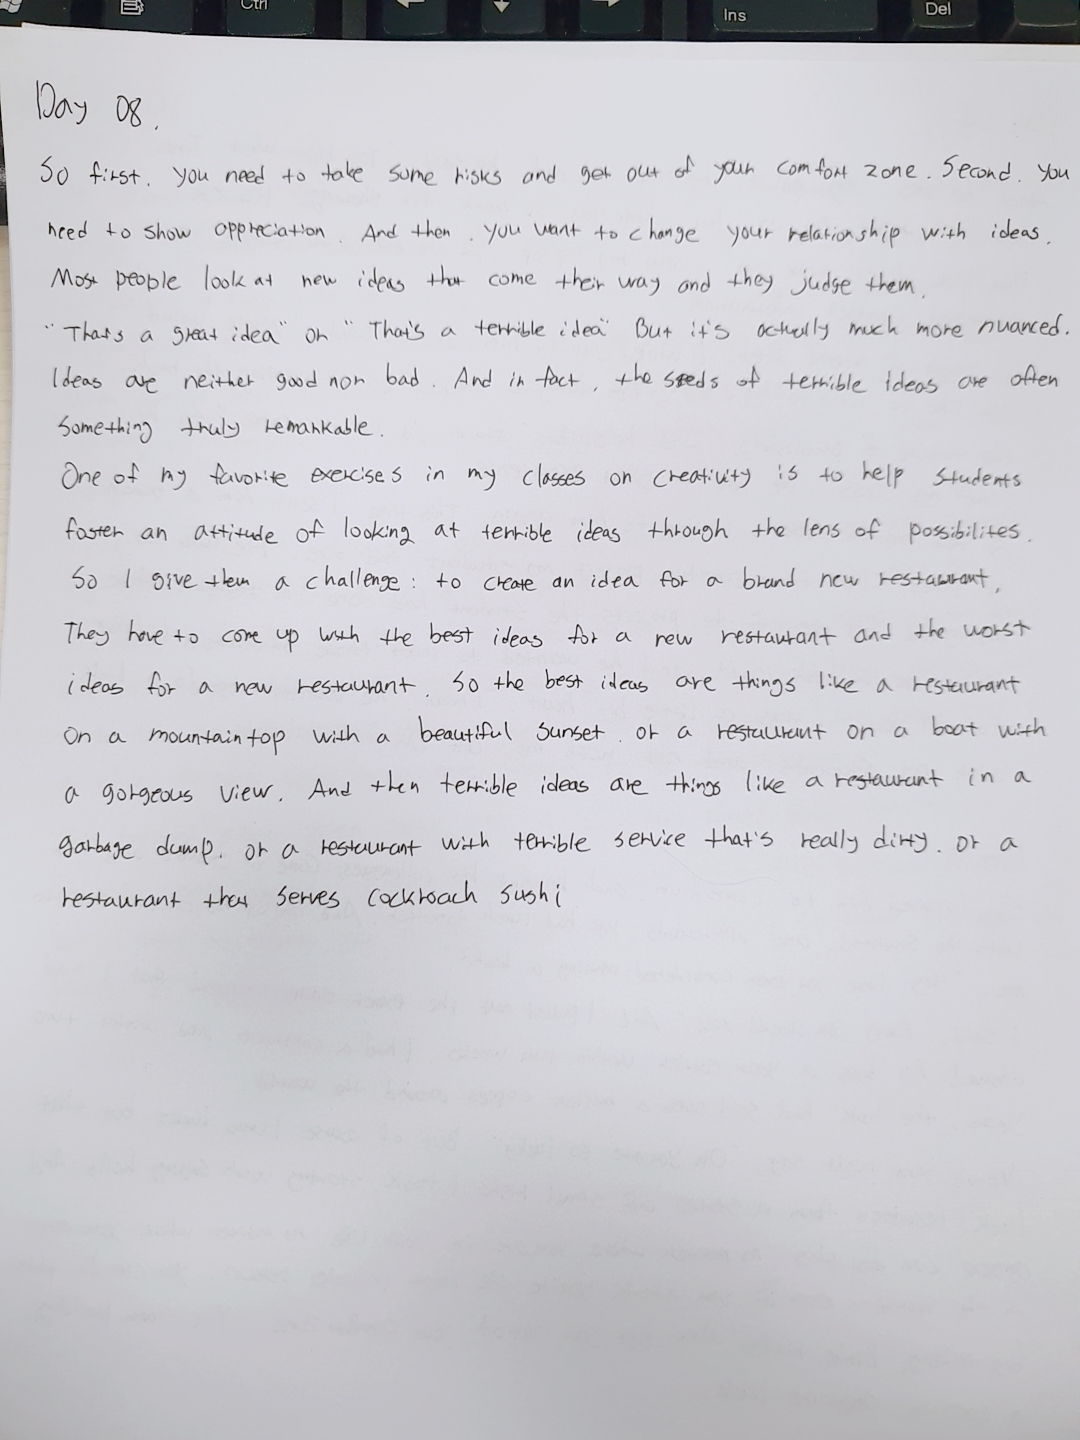 Ctrl
Ins
Del
Day 08.
So first, you need to take some risks and get out of your comfort zone. Second, you
need to show appreciation. And then, you want to change your relationship with ideas.
Most people look at new ideas that come their way and they judge them.
"That's a great idea" or "That's a terrible idea" But it's actually much more nuanced.
Ideas are neither good nor bad. And in fact, the seeds of terrible ideas are often
something truly remarkable.
One of my favorite exercises in my classes on creativity is to help students
foster an attitude of looking at terrible ideas through the lens of possibilites.
So I give them a challenge: to create an idea for a brand new restaurant.
They have to come up with the best ideas for a new restaurant and the worst
ideas for a new restaurant. So the best ideas are things like a restaurant
on a mountain top with a beautiful sunset, or a restaurant on a boat with
a gorgeous view. And then terrible ideas are things like a restaurant in a
garbage dump, or a restaurant with terrible service that's really dirty, or a
restaurant that serves cockroach sushi